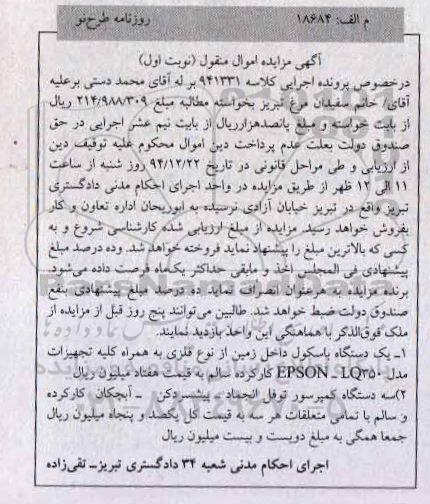 م الف: ۱۸۶۸۴ روزنامه طرح‌نو
آگهی مزایده اموال منقول (نوبت اول)
درخصوص پرونده اجرایی کلاسه ۹۴۱۳۳۱ بر له آقای محمد دستی برعلیه
آقای/ خانم سفیدان مرغ تبریز بخواسته مطالبه مبلغ ۲۱۴/۹۸۸/۳۰۹ ریال
از بابت خواسته و مبلغ پانصدهزارریال از بابت نیم عشر اجرایی در حق
صندوق دولت بعلت عدم پرداخت دین اموال محکوم علیه توقیف دین
از ارزیابی و طی مراحل قانونی در تاریخ ۹۴/۱۲/۲۲ روز شنبه از ساعت
۱۱ الی ۱۲ ظهر از طریق مزایده در واحد اجرای احکام مدنی دادگستری
تبریز واقع در تبریز خیابان آزادی نرسیده به ابوریحان اداره تعاون و کار
بفروش خواهد رسید. مزایده از مبلغ ارزیابی شده کارشناسی شروع و به
کسی که بالاترین مبلغ را پیشنهاد نماید فروخته خواهد شد. وده درصد مبلغ
پیشنهادی فی المجلس اخذ و مابقی حداکثر یک‌ماه فرصت داده می‌شود.
برنده مزایده به هرعنوان انصراف نماید ده درصد مبلغ پیشنهادی بنفع
صندوق دولت ضبط خواهد شد. طالبین می‌توانند پنج روز قبل از مزایده از
ملک فوق‌الذکر با هماهنگی این واحد بازدید نمایند.
۱ـ یک دستگاه باسکول داخل زمین از نوع فلزی به همراه کلیه تجهیزات
مدل EPSON . LQ۳۵۰ کارکرده سالم به قیمت هفتاد میلیون ریال
۲)سه دستگاه کمپرسور تونل انجماد ـ پیشسردکن ـ آبچکان کارکرده
و سالم با تمامی متعلقات هر سه به قیمت کل یکصد و پنجاه میلیون ریال
جمعا همگی به مبلغ دویست و بیست میلیون ریال
اجرای احکام مدنی شعبه ۳۴ دادگستری تبریزـ تقی‌زاده